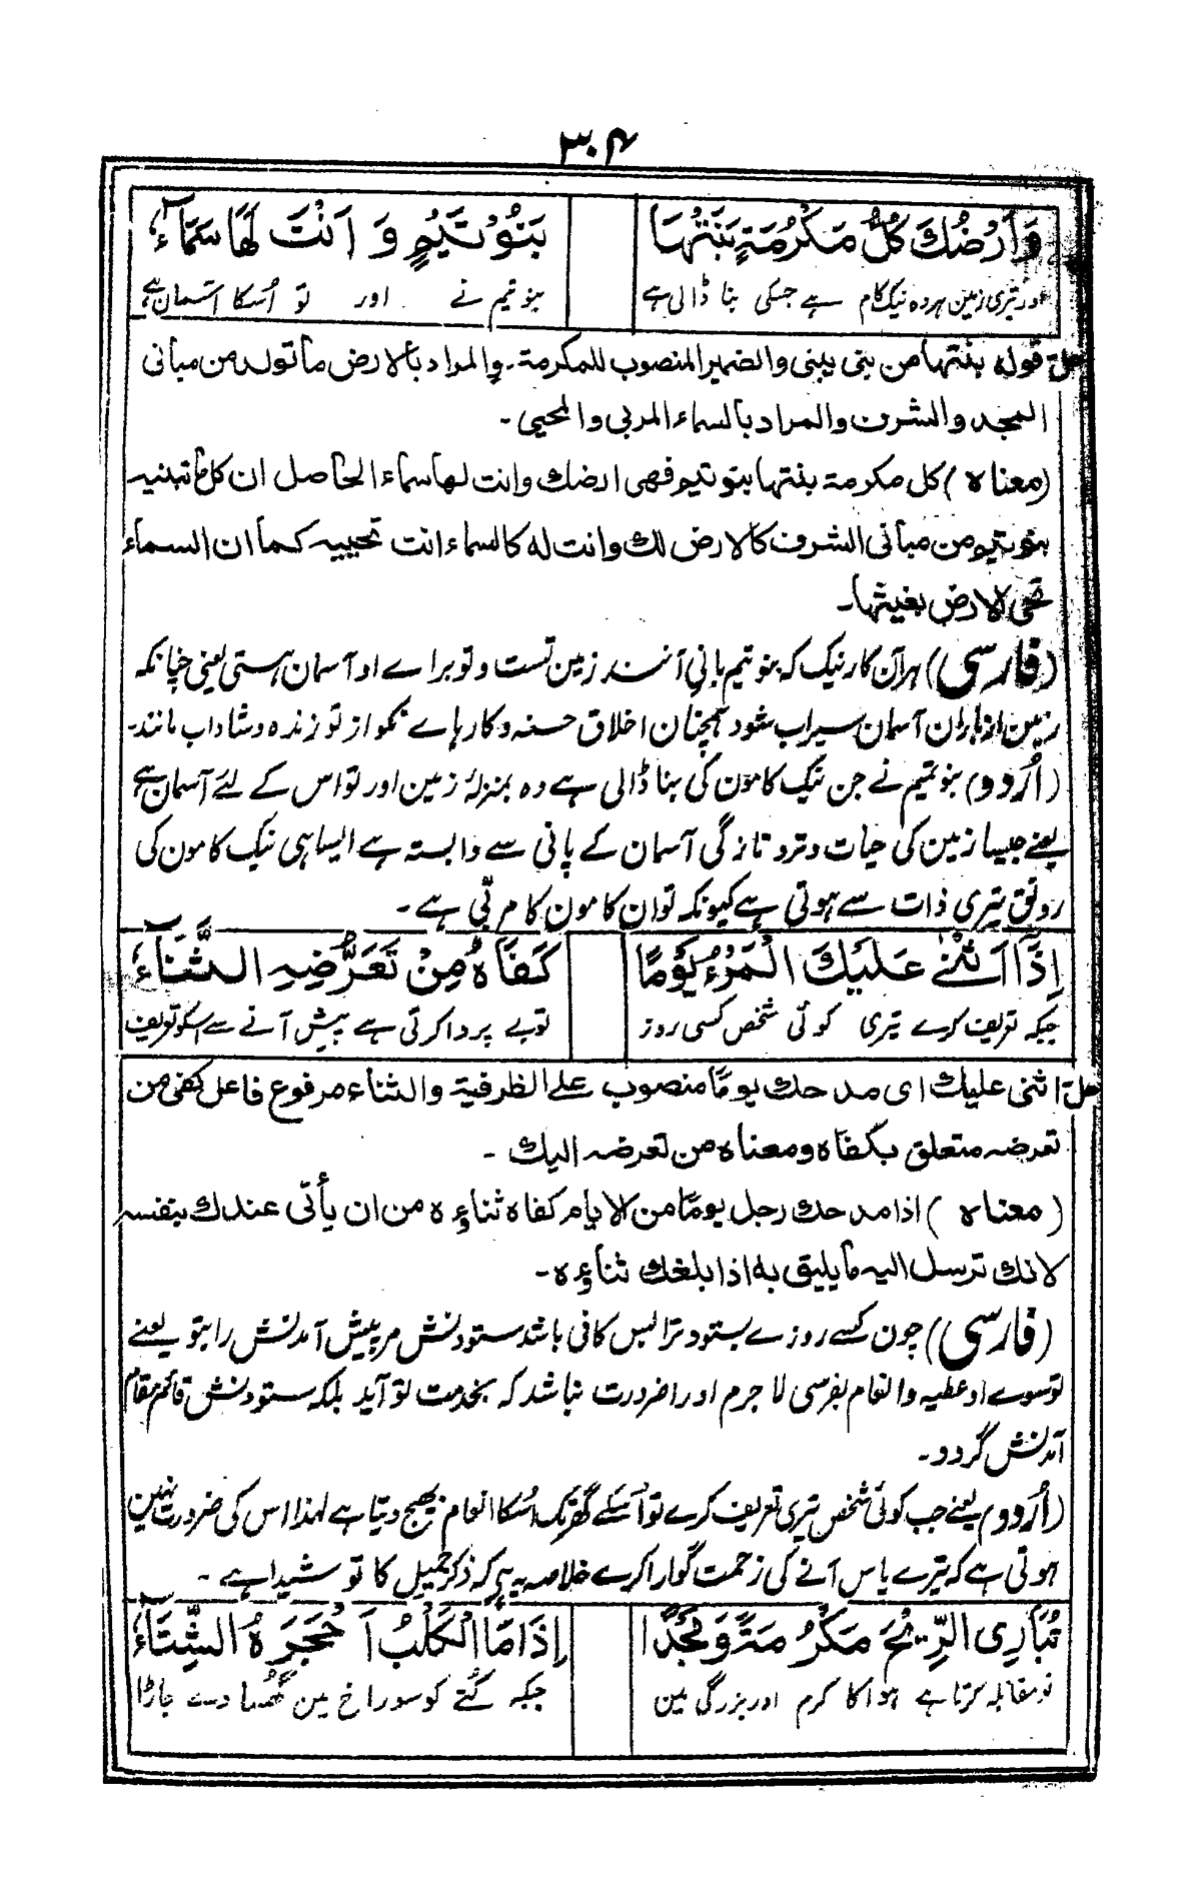 ۳۰۴
وَاَرْضُكَ كُلُّ مَكْرُمَةٍ بَنَتْهَا بَنُوْ تَيْمٍ وَ اَنْتَ لَهَا سَمَآءٗ
اور تیری زمین ہر وہ نیک کام ہے جسکی بنا ڈالی ہے بنو تیم نے اور تو اُسکا آسمان ہے
حل قوله بنتها من بنى يبنى والضمير المنصوب للمكرمة۔ والمراد بالارض ما تولد من مبانى
المجد والشرف والمراد بالسماء المربى والمحيى ۔
(معناه) كل مكرمة بنتها بنو تيم فهى ارضك وانت لها سماء الحاصل ان كل ما تبنيه
بنو تيم من مبانى الشرف كالارض لك وانت له كالسماء انت تحييه كما ان السماء
تحى الارض بغيثها۔
(فارسی) ہر آن کار نیک کہ بنو تیم بانی آنند زمین تست و تو براے او آسمان ہستی یعنی چنانکہ
زمین از باران آسمان سیراب شود ہمچنان اخلاق حسنہ و کارہاے نکو از تو زندہ و شاداب مانند۔
(اُردو) بنو تمیم نے جن نیک کامون کی بنا ڈالی ہے وہ بمنزلۂ زمین اور تو اس کے لئے آسمان ہے
یعنے جیسا زمین کی حیات و تروتازگی آسمان کے پانی سے وابستہ ہے ایسا ہی نیک کامون کی
رونق تیری ذات سے ہوتی ہے کیونکہ تو ان کامون کا مربّی ہے ۔
اِذَا اَثْنٰى عَلَيْكَ الْمَرْءُ يَوْمًا كَفَاهُ مِنْ تَعَرُّضِهِ الثَّنَآءٗ
جبکہ تعریف کرے تیری کوئی شخص کسی روز توبے پرواکرتی ہے پیش آنے سے اسکو تعریف
حل اثنى عليك اى مدحك يومًا منصوب على الظرفية والثناء مرفوع فاعل كفى من
تعرضه متعلق بكفاه ومعناه من تعرضه اليك ۔
(معناه) اذا مدحك رجل يومًا من الايام كفاه ثناؤه من ان يأتى عندك بنفسه
لانك ترسل اليه ما يليق به اذا بلغك ثناؤه۔
(فارسی) چون کسے روزے بستود ترا پس کافی باشد ستودنش مر پیش آمدنش را بتو یعنے
تو سوے او عطیہ و انعام بفرسی لا جرم او را ضرورت نباشد کہ بخدمت تو آید بلکہ ستودنش قائم مقام
آمدنش گردد۔
(اُردو) یعنے جب کوئی شخص تیری تعریف کرے تو اُسکے گھر تک اُسکا انعام بھیج دیتا ہے لہذا اس کی ضرورت نہین
ہوتی ہے کہ تیرے پاس آنے کی زحمت گوارا کرے خلاصہ یہ ہے کہ ذکر جمیل کا تو شیدا ہے ۔
تُبَارِى الرِّيْحَ مَكْرُمَةً وَمَجْدًا اِذَا مَا الْكَلْبُ اَحْجَرَهُ الشِّتَآءٗ
تو مقابلہ کرتا ہے ہوا کا کرم اور بزرگی مین جبکہ کتّے کو سوراخ مین گھسا دے جاڑا